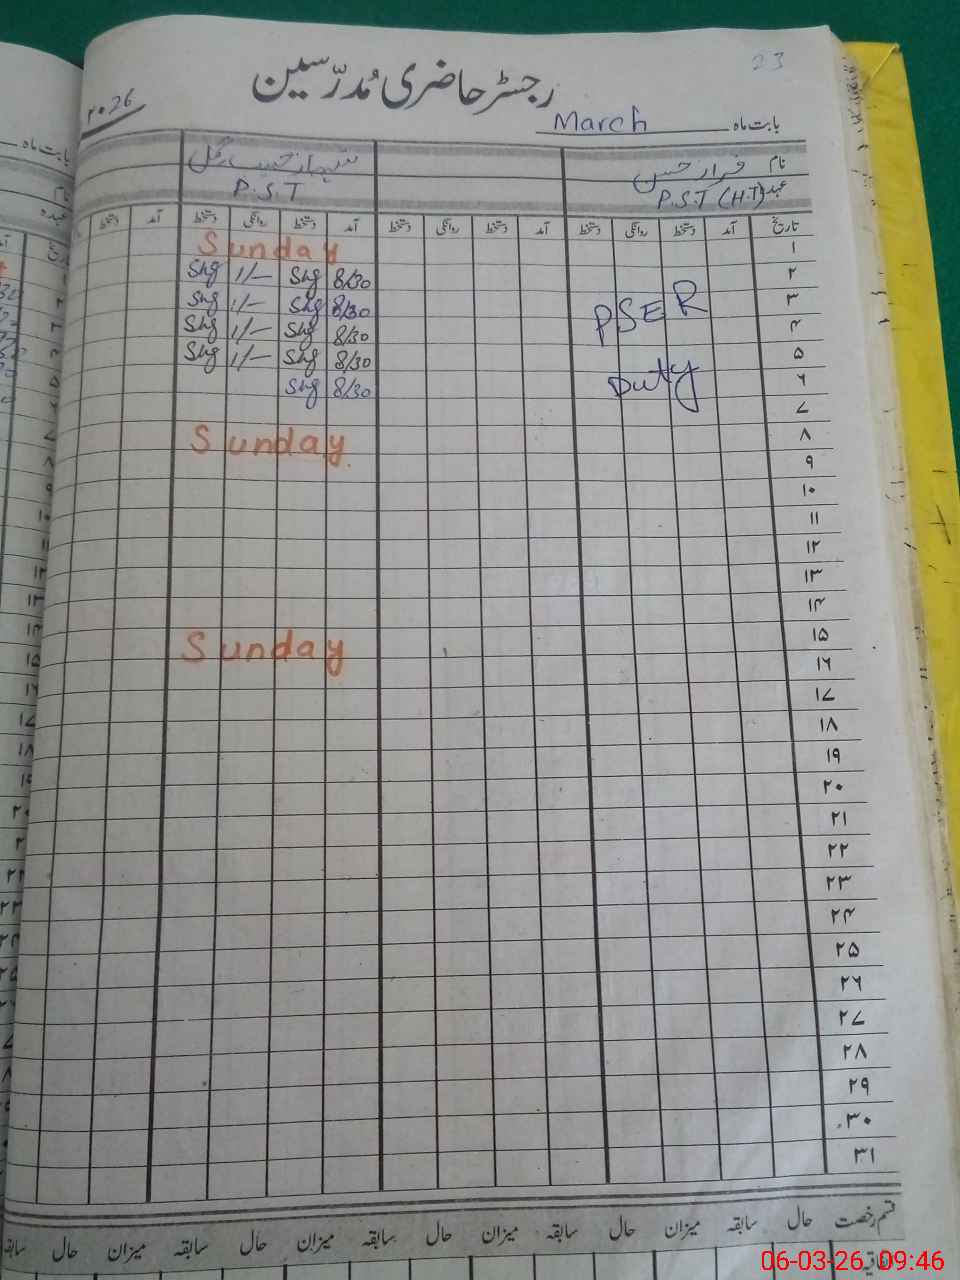 23
رجسٹر حاضری مُدرّسین
بابت ماہ March ۲۰26
نام فراز حسن
عہدہ P.S.T (H.T)
P.S.T
تاریخ آمد دستخط روانگی دستخط آمد دستخط روانگی دستخط آمد دستخط روانگی دستخط آمد دستخط
۱ Sunday
۲ 8/30 Shg 1/— Shg
۳ 8/30 Shg 1/— Shg
۴ 8/30 Shg 1/— Shg
۵ 8/30 Shg 1/— Shg
۶ 8/30 Shg
PSER
Duty
۷
۸ Sunday
۹
۱۰
۱۱
۱۲
۱۳
۱۴
۱۵ Sunday
۱۶
۱۷
۱۸
۱۹
۲۰
۲۱
۲۲
۲۳
۲۴
۲۵
۲۶
۲۷
۲۸
۲۹
۳۰
۳۱
قسم رخصت حال سابقہ میزان حال سابقہ میزان حال سابقہ میزان حال سابقہ میزان حال سابقہ
06-03-26 09:46